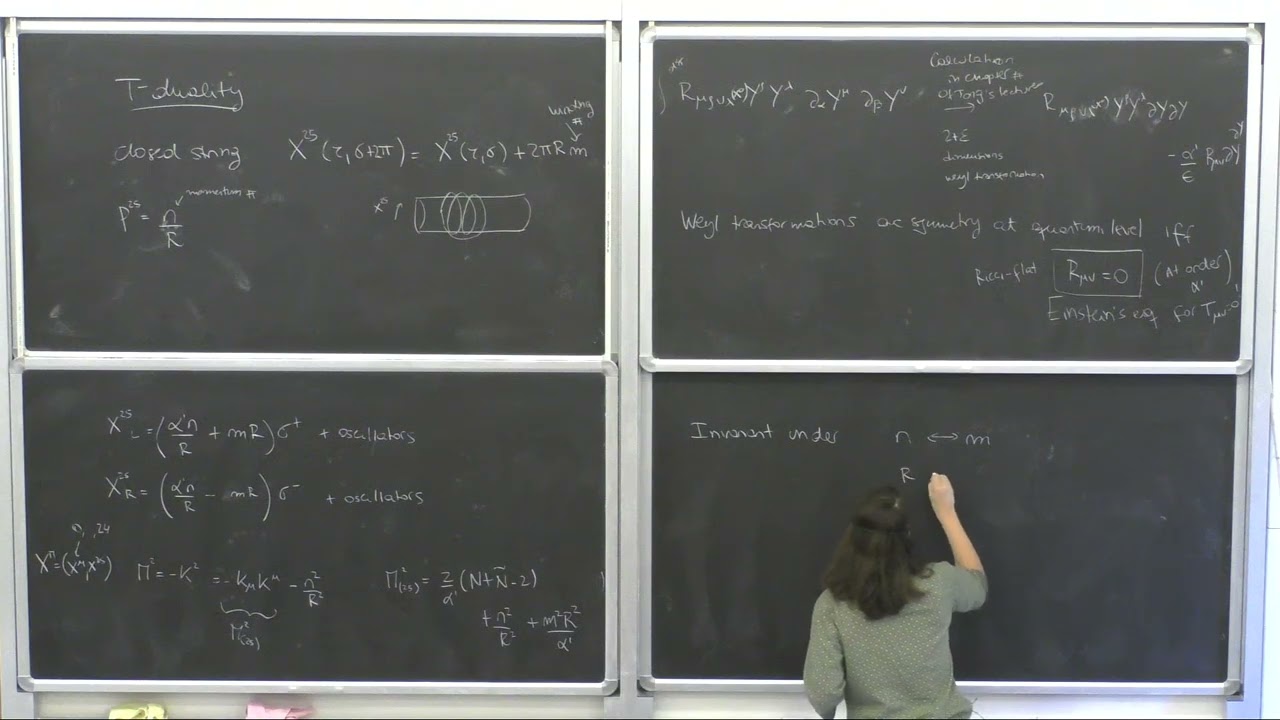 T-duality
winding
#
closed string X²⁵(τ,σ+2π) = X²⁵(τ,σ) + 2πRm
momentum #
P²⁵ = n/R
X²⁵
X²⁵_L = (α'n/R + mR) σ⁺ + oscillators
X²⁵_R = (α'n/R − mR) σ⁻ + oscillators
, 24
X^M = (X^μ, X²⁵) M² = −K² = −K_μK^μ − n²/R² M²₍₂₅₎ = 2/α' (N+Ñ−2)
M²₍₂₅₎ + n²/R² + m²R²/α'
Calculation
in chapter #
of Tong's lectures
→
2+ε
dimensions
weyl transformation
∂_α Y^μ ∂_β Y^ν
Weyl transformations a symmetry at quantum level iff
Ricci-flat R_μν = 0 (At order α')
Einstein's eq for T_μν=0
Invariant under n ↔ m
R